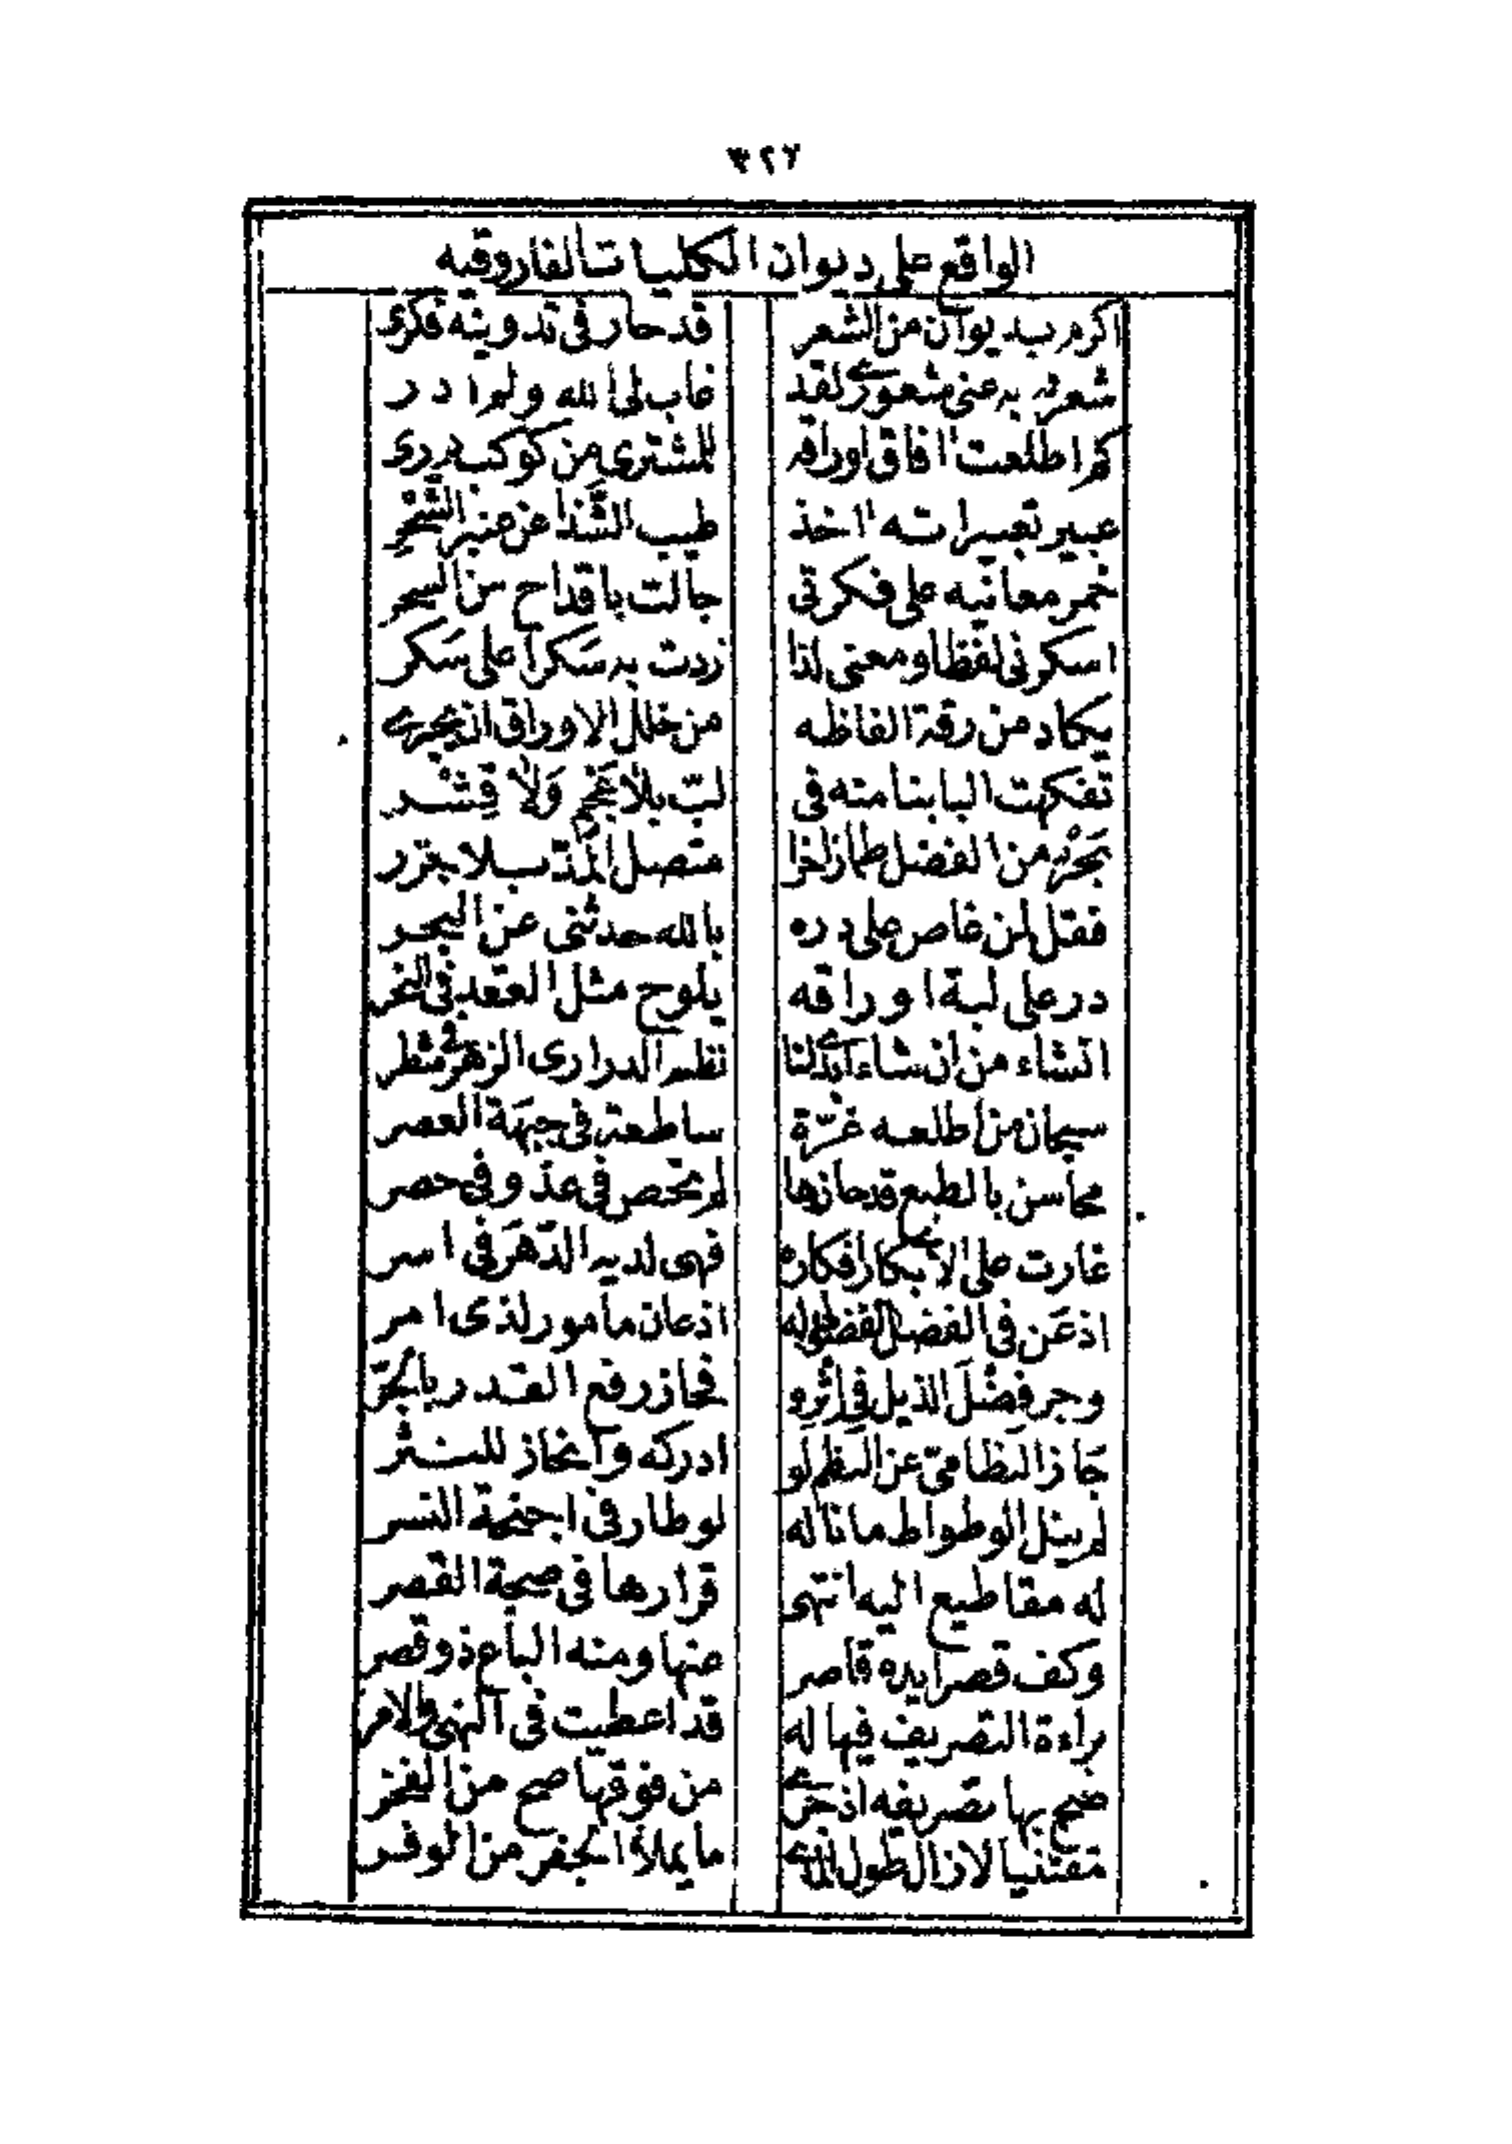 ٣٢٧
الواقع على ديوان الكليات الفاروقيه
اكرم بديوان من الشعر قد حار فى تدوينه فكرى
شعرت به عنى شعورى لقد غاب لى الله ولم ادر
كم اطلعت افاق اوراقه للمشترى من كوكب درى
عبير تعبيراته اخذ طيب الشَّذا عن عنبر الشَّحْرِ
خمر معانيه على فكرتى جالت باقداح من السحر
اسكرنى لفظا ومعنى لذا زدت به سكرا على سكر
يكاد من رقة الفاظه من خلل الاوراق ان يجرى
تفكهت البابنا منه فى لبّ بلا عجم وَلا قشر
بحر من الفضل طما زاخرا متصل المدّ بلا جزر
فقل لمن غاص على دره بالله حدثنى عن البحر
در على لبة اوراقه يلوح مثل العقد فى النحر
انشاء من انشاء ابدى لنا نظم الدرارى الزهر فى سطر
سبحان من اطلعه غرّة ساطعة فى جبهة العصر
محاسن بالطبع قد حازها لم تحص فى عدّ وفى حصر
غارت على الابكار افكاره فهى لديه الدّهرَ فى اسر
اذعَن فى الفضل الفضولى له اذعان مامور لذى امر
وجر فضْلَ الذيل فى اثره و فحاز رفع القدر بالجرّ
جَاز النظامىّ عن النظم لو ادركه وانحاز للنثر
لم ينل الوطواط ما ناله لو طار فى اجنحة النسر
له مقاطيع اليه انتهى قرارها فى صحة القصر
وكف قصرا يده قاصر عنها ومنه الباع ذو قصر
براءة التصريف فيها له قد اعطيت فى النهى والامر
صح بها تصريفه اذ جرى من فوقها صح من الفخر
مقتنيا لا زال طول المدى ما يملأ الجفر من الوفر